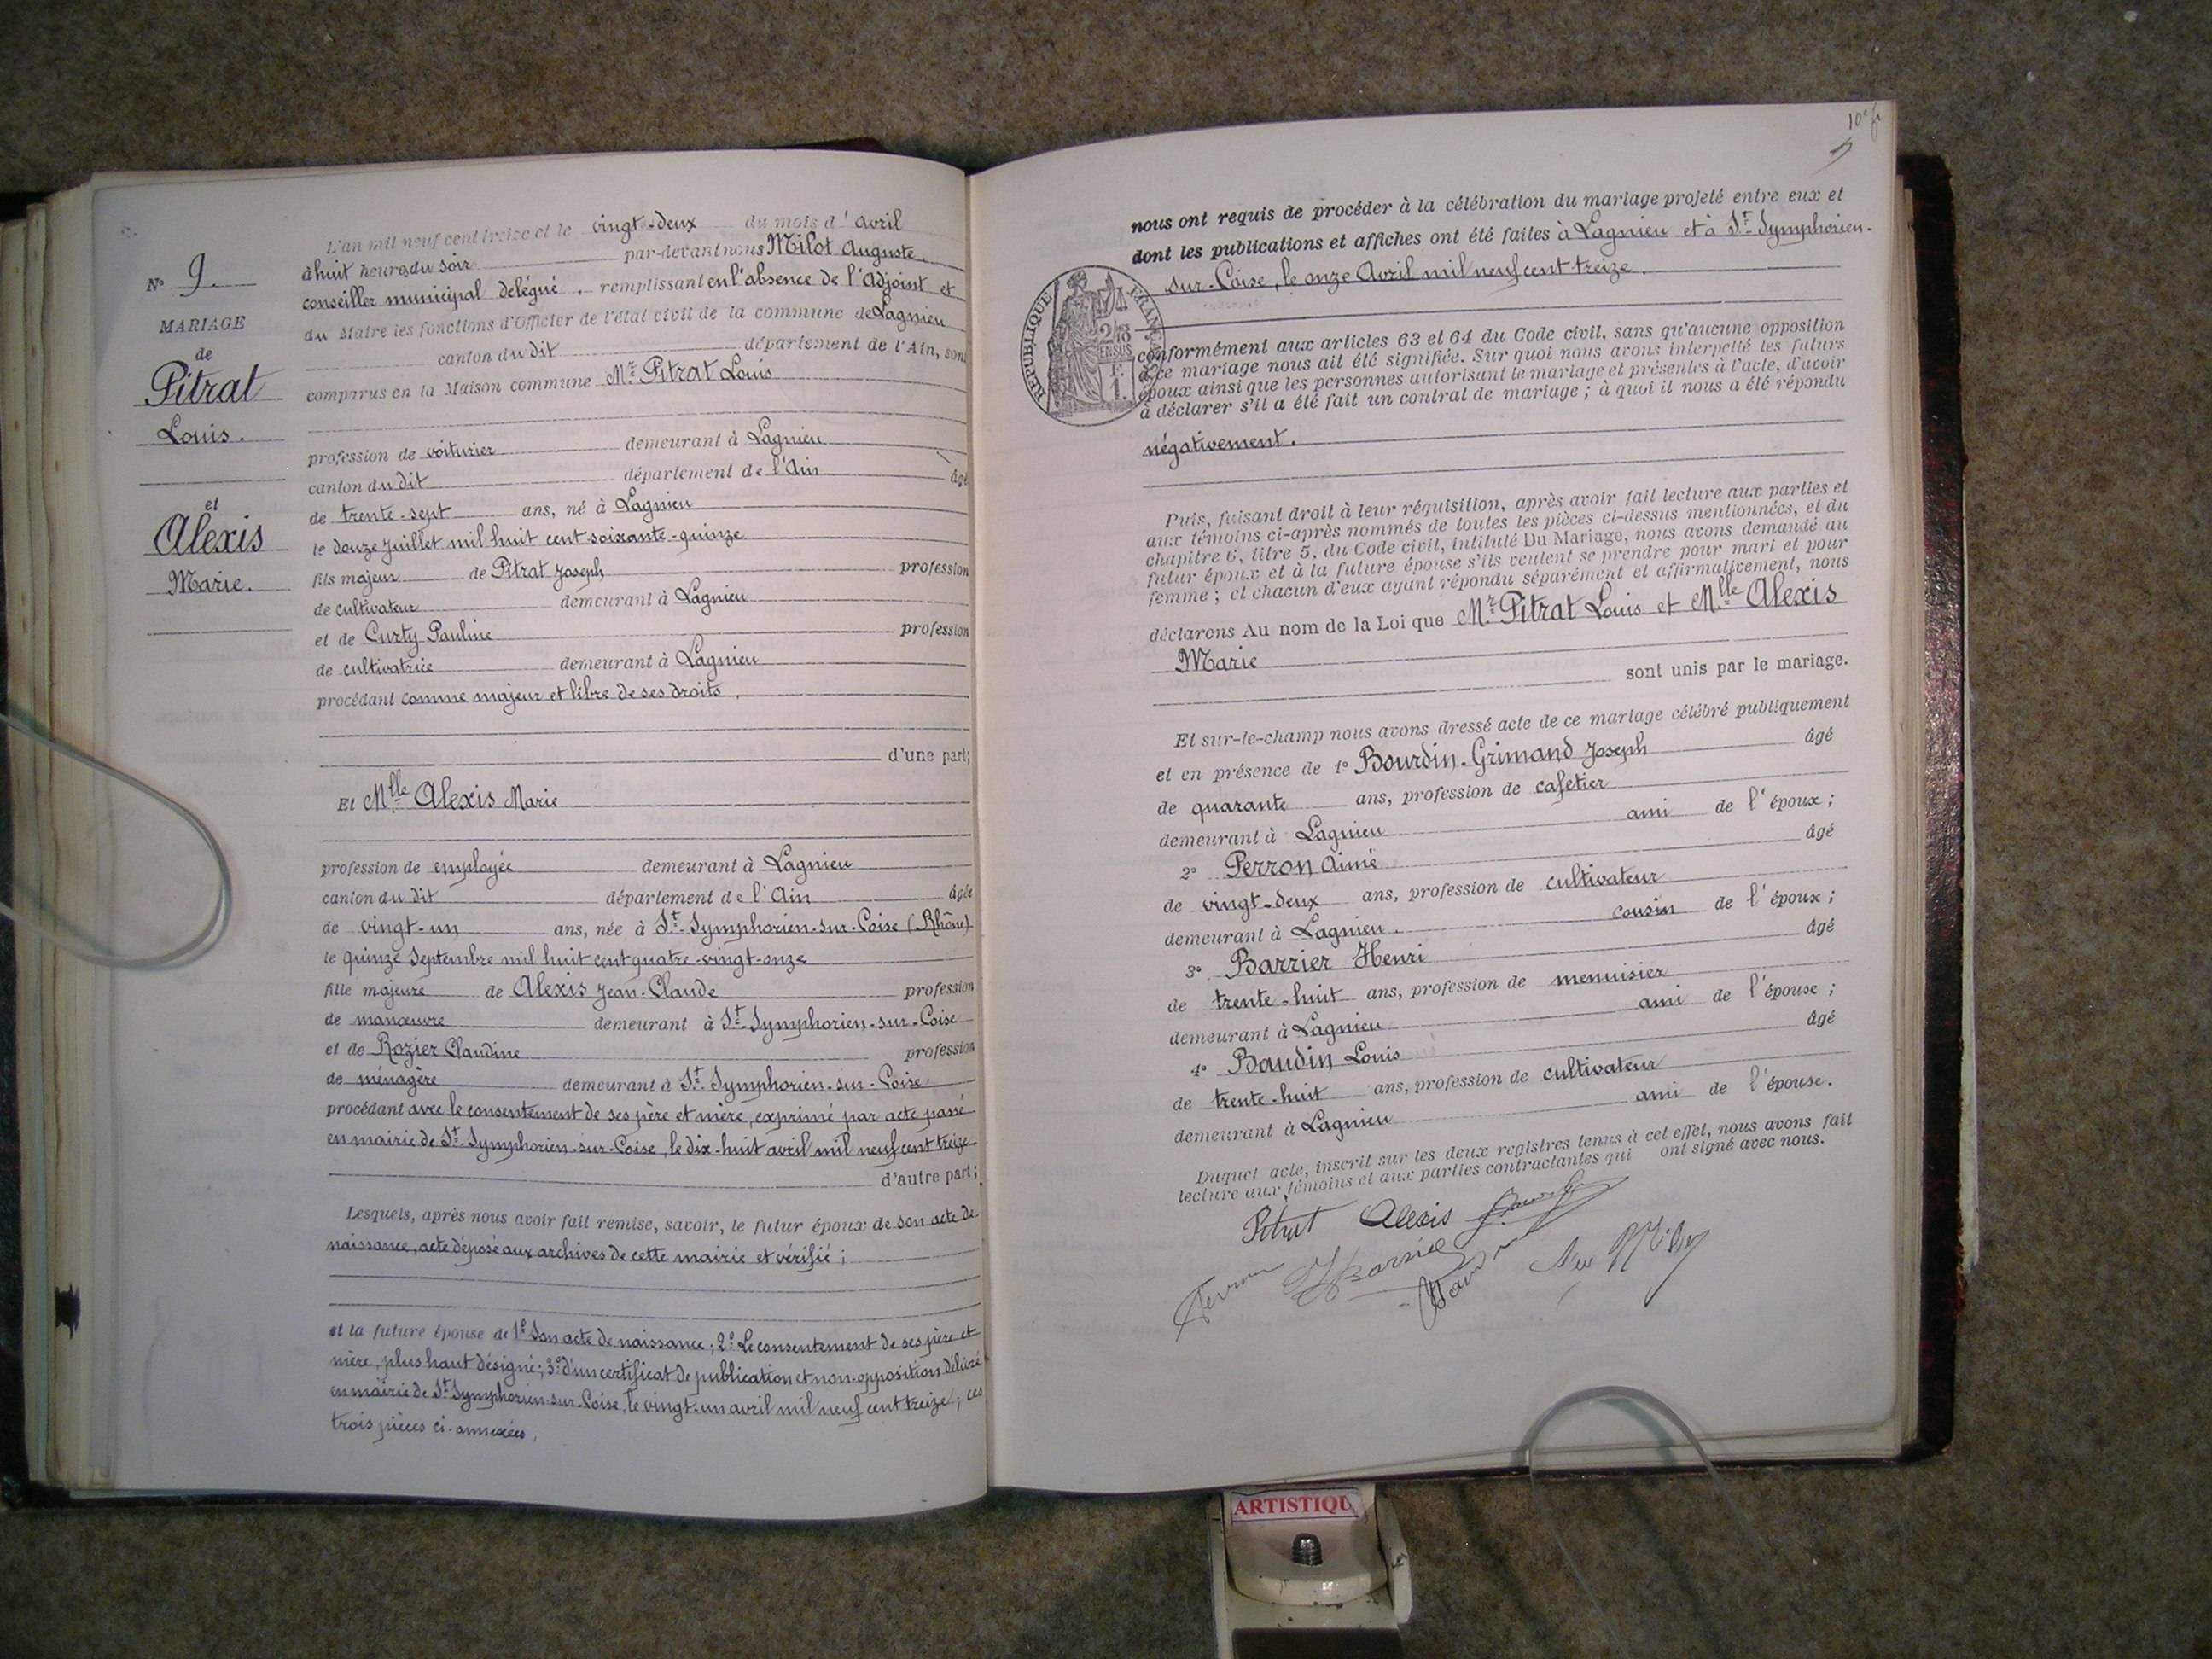 N° 9.
MARIAGE
de
Pitrat
Louis.
et
Alexis
Marie.
L'an mil neuf cent treize et le vingt-deux du mois d'avril
à huit heures du soir par-devant nous Milot Auguste,
conseiller municipal délégué, remplissant en l'absence de l'Adjoint et
du Maire les fonctions d'Officier de l'état civil de la commune de Lagnieu
canton du dit département de l'Ain, sont
comparus en la Maison commune Mr. Pitrat Louis
profession de voiturier demeurant à Lagnieu
canton du dit département de l'Ain âgé
de trente-sept ans, né à Lagnieu
le douze juillet mil huit cent soixante-quinze
fils majeur de Pitrat Joseph profession
de cultivateur demeurant à Lagnieu
et de Curty Pauline profession
de cultivatrice demeurant à Lagnieu
procédant comme majeur et libre de ses droits,
d'une part;
Et Mlle Alexis Marie
profession de employée demeurant à Lagnieu
canton du dit département de l'Ain âgée
de vingt-un ans, née à St-Symphorien-sur-Coise (Rhône)
le quinze Septembre mil huit cent quatre-vingt-onze
fille majeure de Alexis Jean-Claude profession
de manœuvre demeurant à St-Symphorien-sur-Coise
et de Rozier Claudine profession
de ménagère demeurant à St-Symphorien-sur-Coise
procédant avec le consentement de ses père et mère, exprimé par acte passé
en mairie de St-Symphorien-sur-Coise, le dix-huit avril mil neuf cent treize
d'autre part;
Lesquels, après nous avoir fait remise, savoir, le futur époux de son acte de
naissance, acte déposé aux archives de cette mairie et vérifié;
et la future épouse de 1° Son acte de naissance; 2° Le consentement de ses père et
mère, plus haut désigné; 3° d'un certificat de publication et non-opposition délivré
en mairie de St-Symphorien-sur-Coise, le vingt-un avril mil neuf cent treize; ces
trois pièces ci-annexées,
nous ont requis de procéder à la célébration du mariage projeté entre eux et
dont les publications et affiches ont été faites à Lagnieu et à St-Symphorien-
sur-Coise, le onze Avril mil neuf cent treize.
RÉPUBLIQUE FRANÇAISE
conformément aux articles 63 et 64 du Code civil, sans qu'aucune opposition
à ce mariage nous ait été signifiée. Sur quoi nous avons interpellé les futurs
époux ainsi que les personnes autorisant le mariage et présentes à l'acte, d'avoir
à déclarer s'il a été fait un contrat de mariage; à quoi il nous a été répondu
négativement.
Puis, faisant droit à leur réquisition, après avoir fait lecture aux parties et
aux témoins ci-après nommés de toutes les pièces ci-dessus mentionnées, et du
chapitre 6, titre 5, du Code civil, intitulé Du Mariage, nous avons demandé au
futur époux et à la future épouse s'ils veulent se prendre pour mari et pour
femme; et chacun d'eux ayant répondu séparément et affirmativement, nous
déclarons Au nom de la Loi que Mr. Pitrat Louis et Mlle Alexis
Marie
sont unis par le mariage.
Et sur-le-champ nous avons dressé acte de ce mariage célébré publiquement
et en présence de 1° Bourdin-Grimand Joseph âgé
de quarante ans, profession de cafetier
demeurant à Lagnieu ami de l'époux;
2° Perron Aimé âgé
de vingt-deux ans, profession de cultivateur
demeurant à Lagnieu. cousin de l'époux;
3° Barrier Henri âgé
de trente-huit ans, profession de menuisier
demeurant à Lagnieu ami de l'épouse;
4° Baudin Louis âgé
de trente-huit ans, profession de cultivateur
demeurant à Lagnieu ami de l'épouse.
Duquel acte, inscrit sur les deux registres tenus à cet effet, nous avons fait
lecture aux témoins et aux parties contractantes qui ont signé avec nous.
Pitrat Alexis
Perron HBarrier
ARTISTIQU